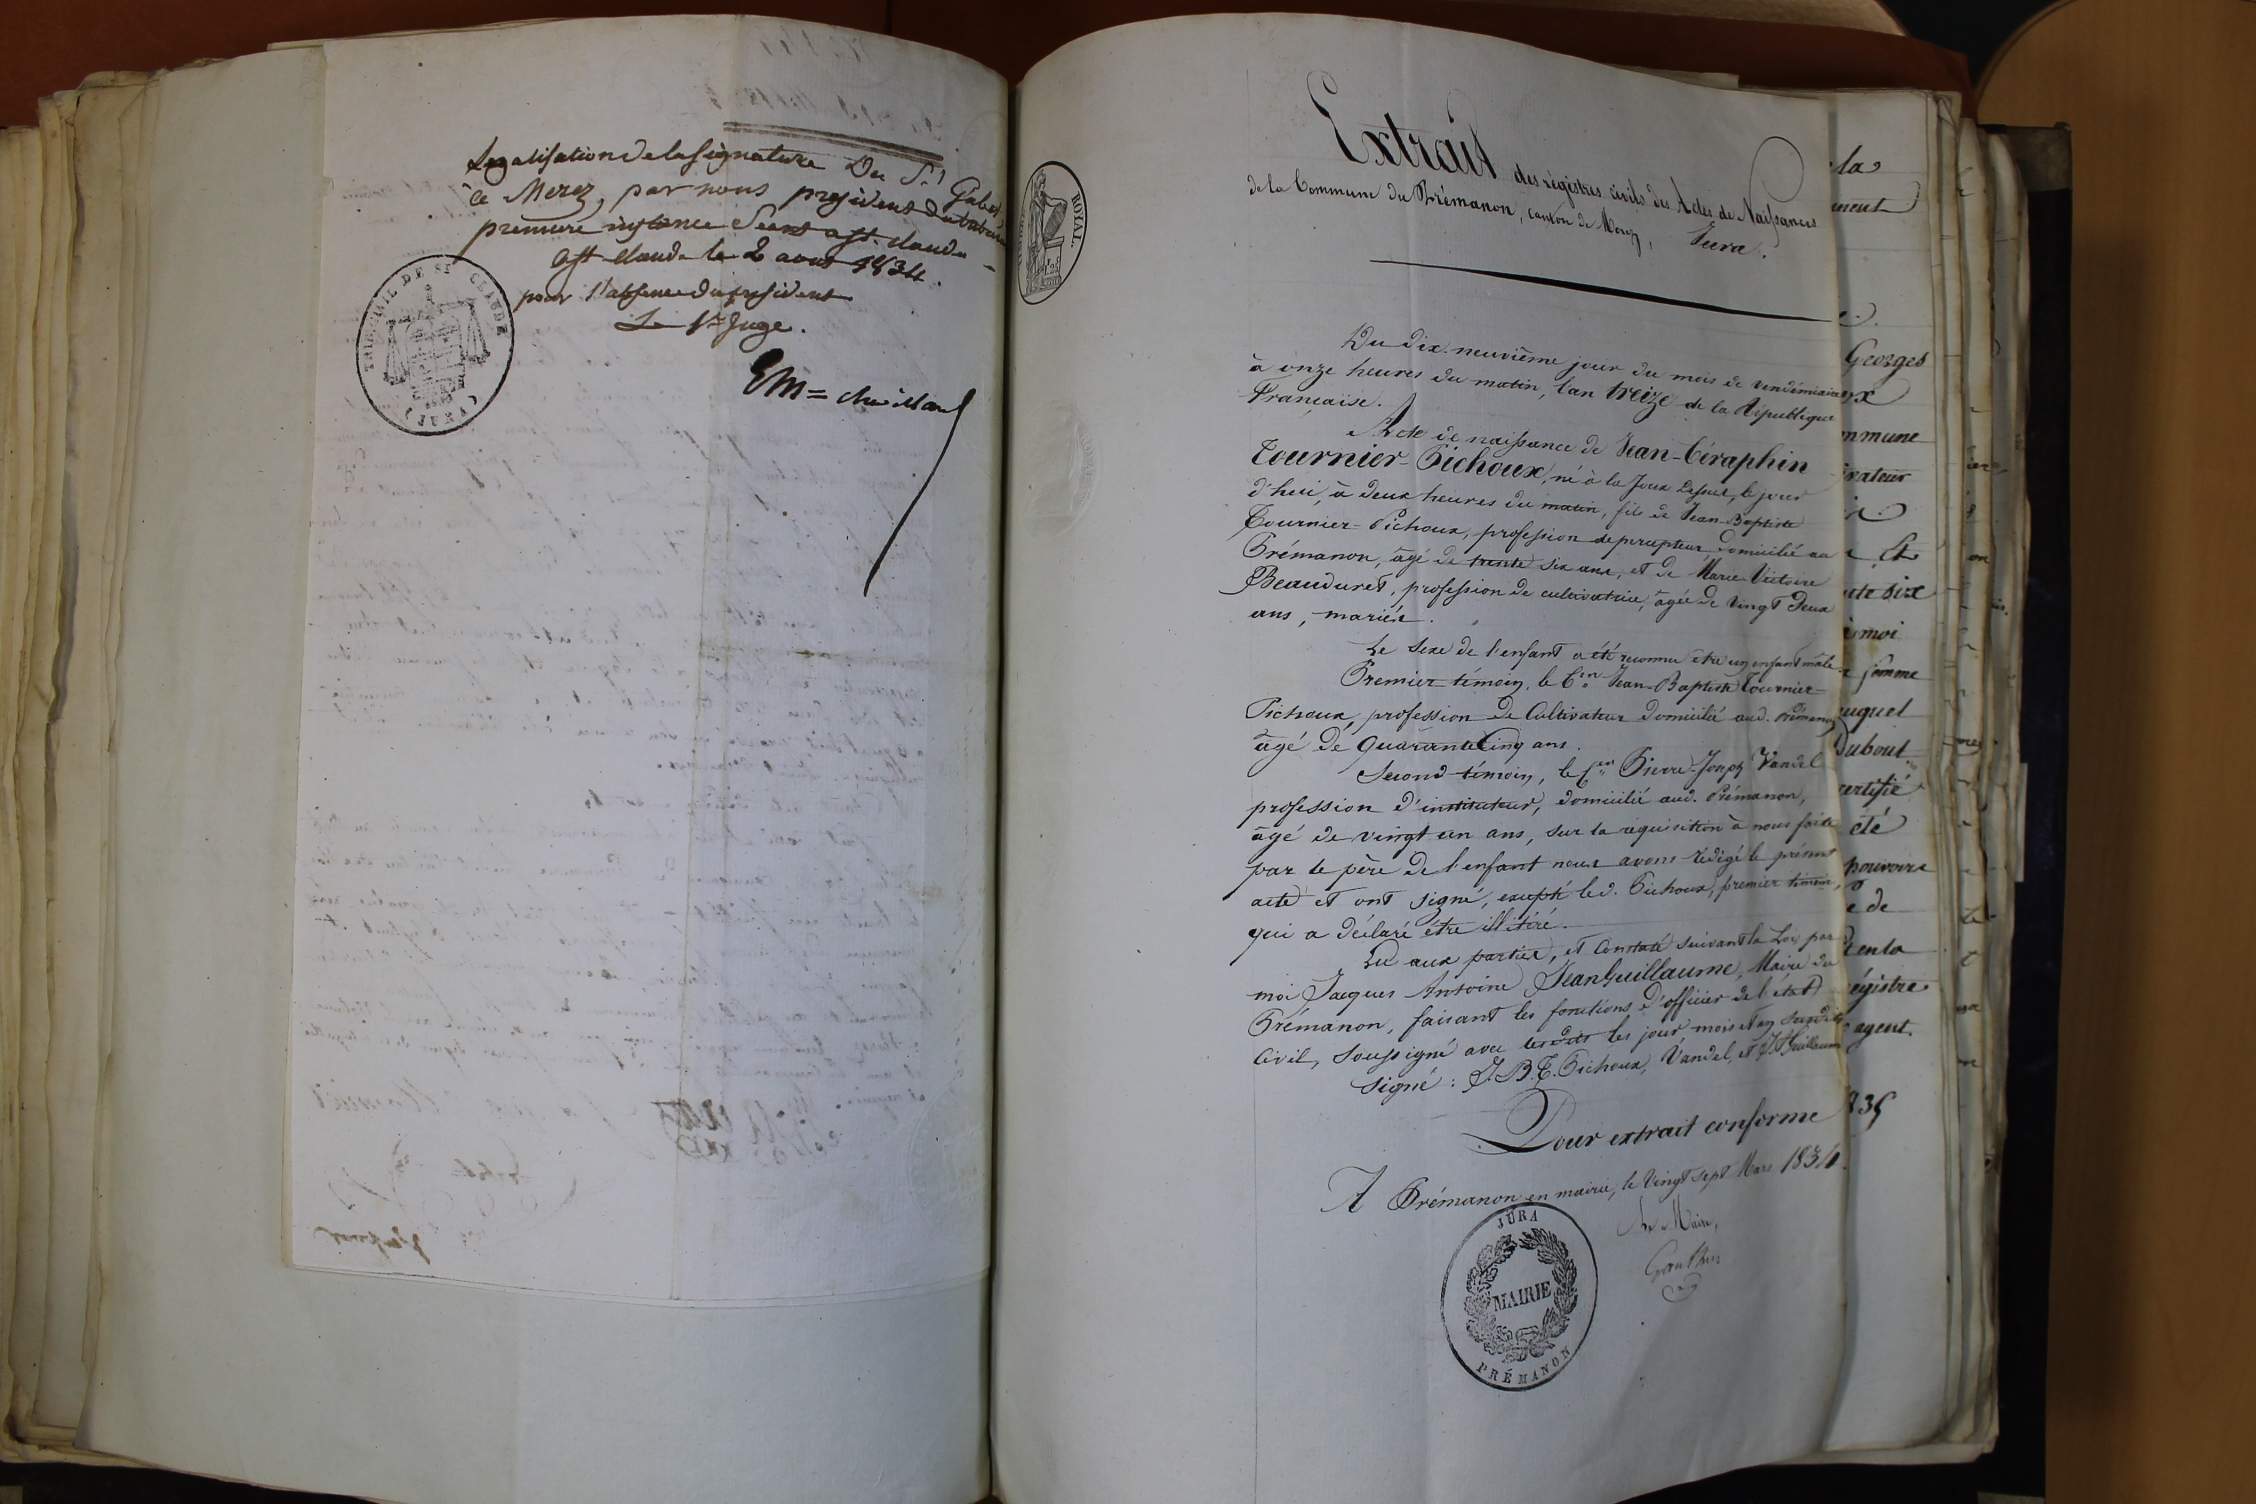 Legalisation de la signature Du Sr Gabet,
à Morez, par nous president du tribunal
premiere instance Seant a St. Claude
a St Claude le 2 avril 1834.
pour l'absence du president
Le 1er Juge.
TRIBUNAL DE ST CLAUDE
(JURA)
ROYAL.
Extrait des régistres civils des Actes de Naissances
de la Commune du Prémanon, canton de Morez, Jura.
Du dix-neuvième jour du mois de vendémiaire
à onze heures du matin, l'an treize de la République
Française.
Acte de naissance de Jean-Céraphin
Tournier-Pichoux, né à la Joux Dessus, le jour
d'hui, à deux heures du matin, fils de Jean-Baptiste
Tournier-Pichoux, profession de percepteur, domicilié au
Prémanon, âgé de trente six ans, et de Marie-Victoire
Beauduret, profession de cultivatrice, âgée de vingt deux
ans, mariés.
Le sexe de l'enfant a été reconnu être un enfant mâle.
Premier témoin, le Cen Jean-Baptiste Tournier-
Pichoux, profession de Cultivateur domicilié aud. Prémanon
âgé de quarante Cinq ans.
Second témoin, le Cen Pierre-Joseph Vandel
profession d'instituteur, domicilié aud. Prémanon,
âgé de vingt un ans, sur la réquisition à nous faite
par le père de l'enfant nous avons rédigé le présent
acte et ont signé, excepté led. Pichoux, premier témoin,
qui a déclaré être illitéré.
Lu aux parties, et Constaté suivant la Loi par
moi Jacques Antoine JeanGuillaume, Maire du
Prémanon, faisant les fonctions d'officier de l'état
Civil, soussigné avec lesdits les jour mois et an susdits
Signé: J.B.T. Pichoux, Vandel, et J.A. Guillaume
Pour extrait conforme
A Prémanon en mairie, le vingt sept Mars 1834.
Le Maire,
JURA
MAIRIE
PRÉMANON
la
Georges
mmune
acte dix
moi
somme
auquel
Dubout
certifié
été
pouvoirs
e de
en la
régistre
agent.